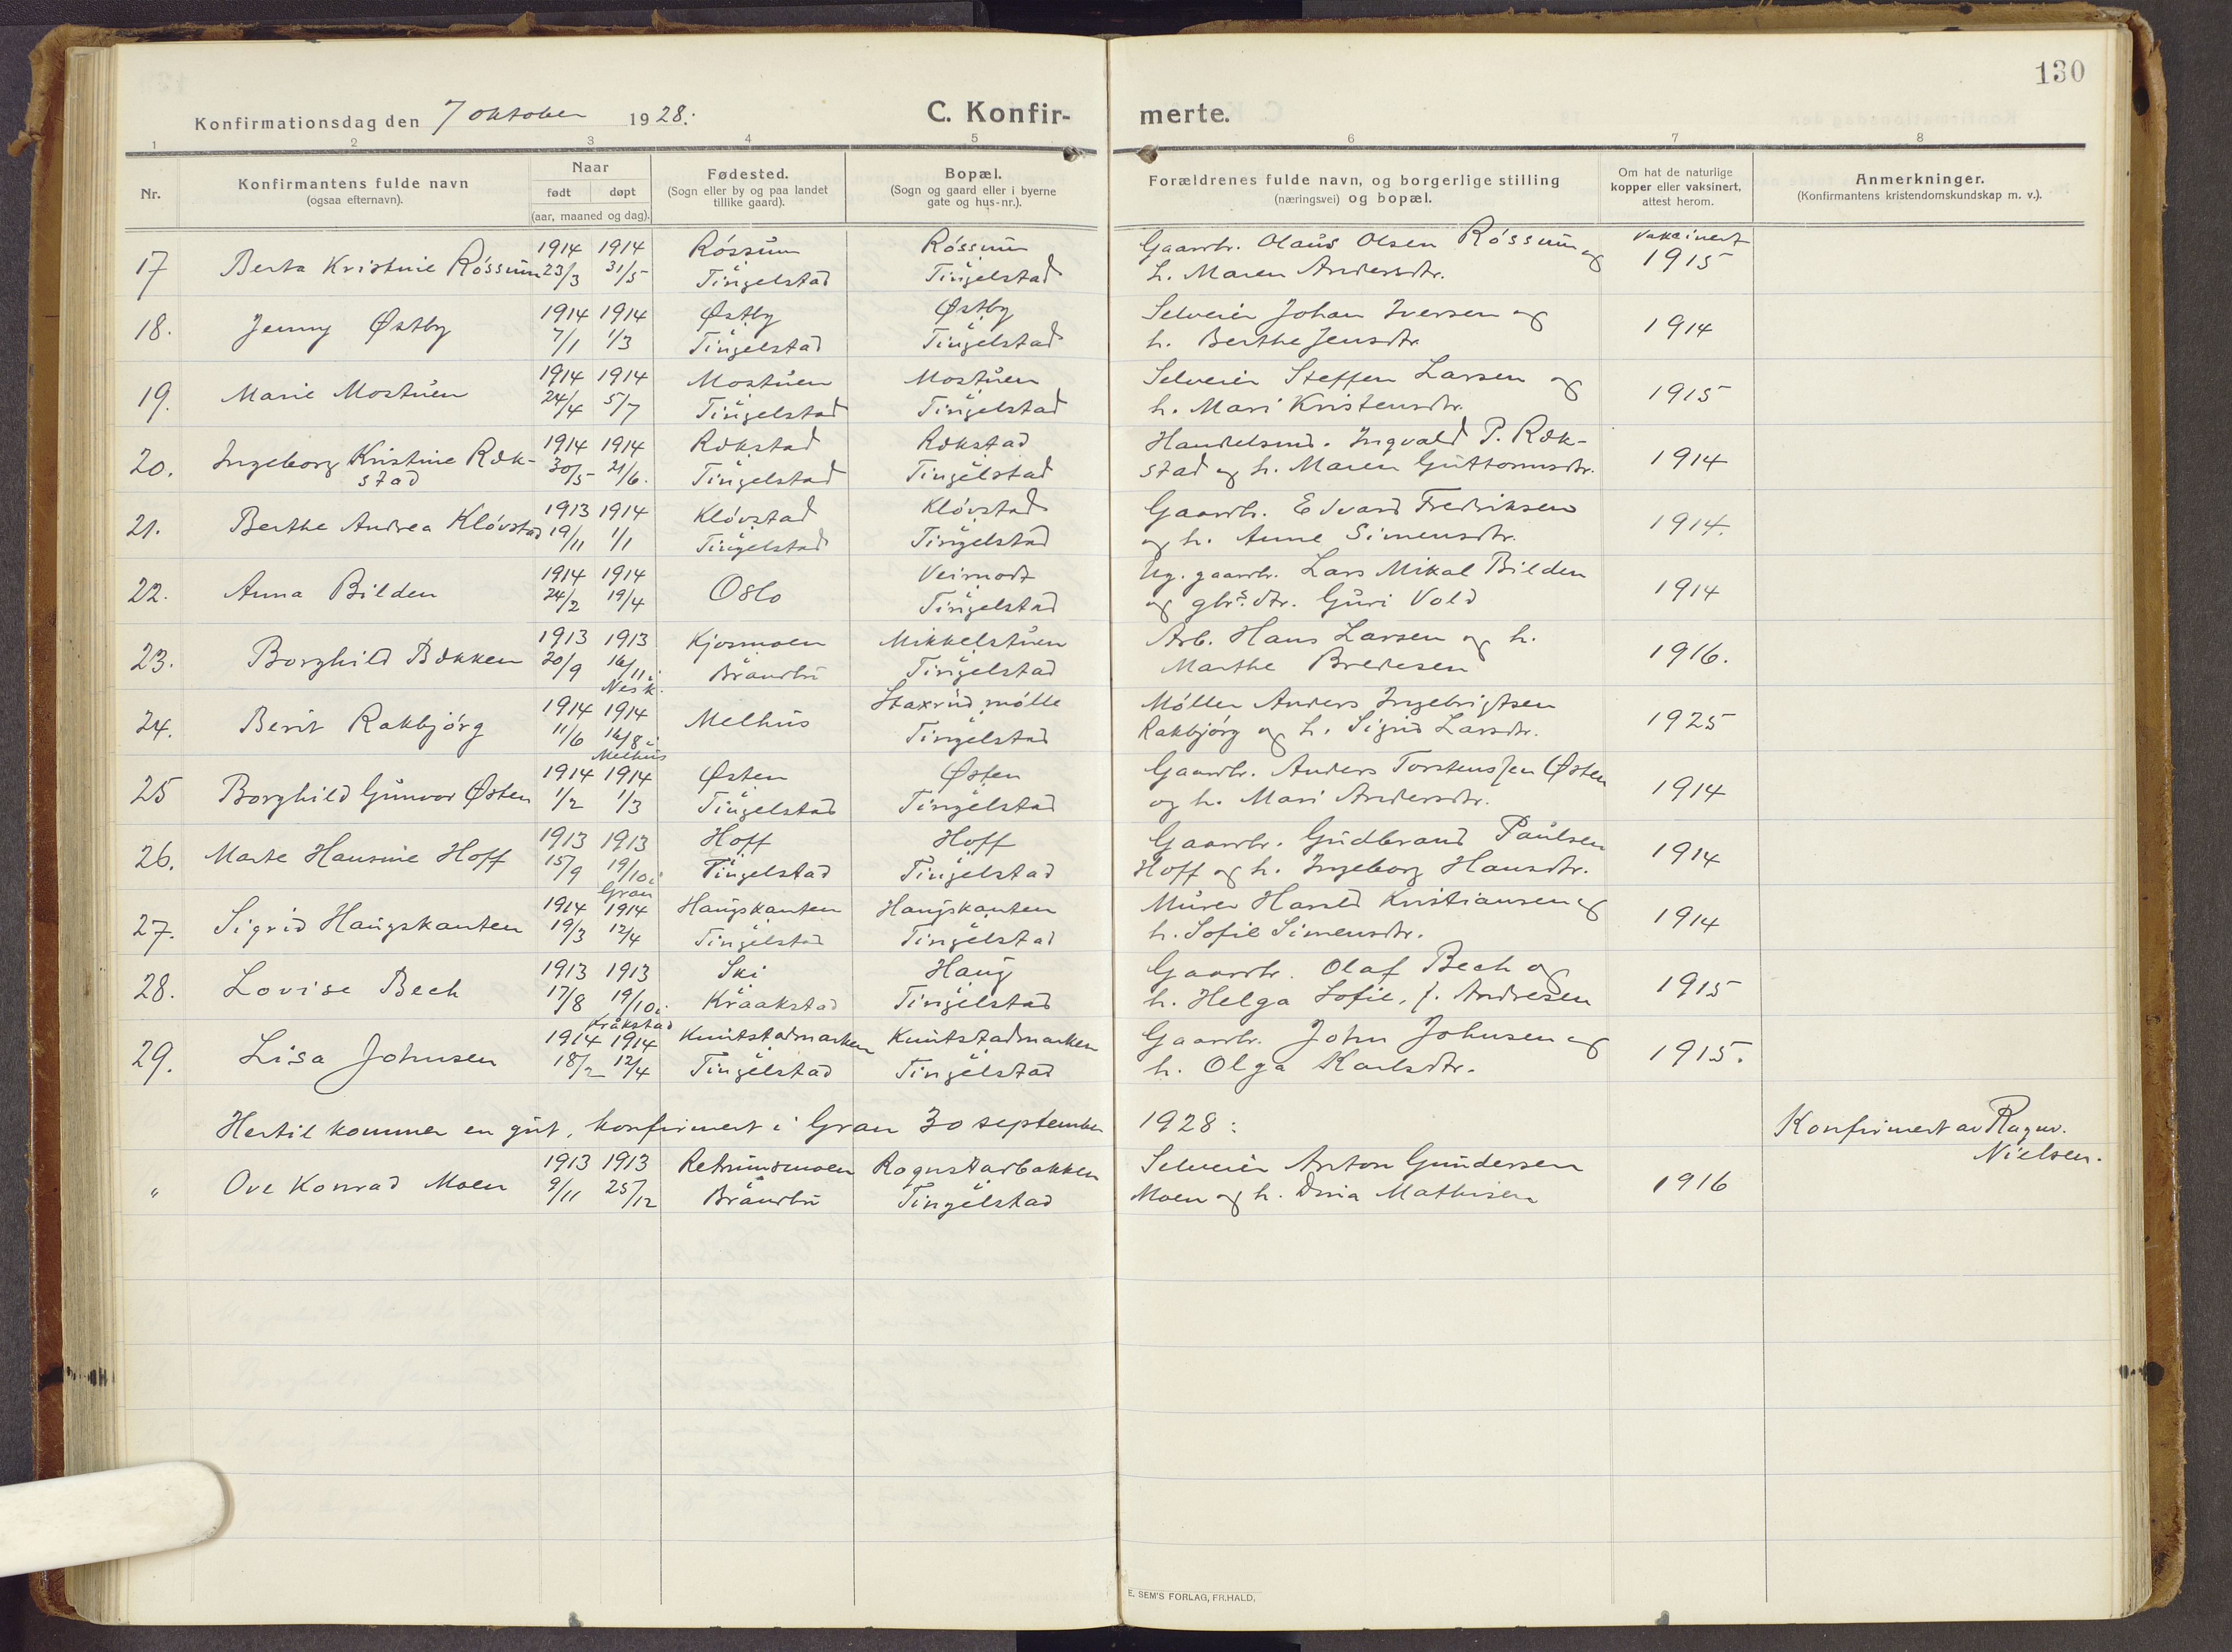 130
Konfirmationsdag den 7 oktober 1928.
C. Konfir- merte.
1 2 3 4 5 6 7 8
Nr.
Konfirmantens fulde navn
(ogsaa efternavn).
Naar
født døpt
(aar, maaned og dag).
Fødested.
(Sogn eller by og paa landet
tillike gaard).
Bopæl.
(Sogn og gaard eller i byerne
gate og hus-nr.).
Forældrenes fulde navn, og borgerlige stilling
(næringsvei) og bopæl.
Om hat de naturlige
kopper eller vaksinert,
attest herom.
Anmerkninger.
(Konfirmantens kristendomskundskap m. v.).
1914 1914 Røssum Røssum Gaardbr. Olaus Olsen Røssum og vaksinert
17 Berta Kristine Røssum 23/3 31/5 Tingelstad Tingelstad h. Maren Andersdtr. 1915
1914 1914 Østby Østby Selveier Johan Iversen og
18. Jenny Østby 7/1 1/3 Tingelstad Tingelstad h. Berthe Jensdtr 1914
1914 1914 Mostuen Mostuen Selveier Steffen Larsen og
19. Marie Mostuen 24/4 5/7 Tingelstad Tingelstad h. Mari Kristensdtr. 1915
1914 1914 Rækstad Rækstad Handelsmd. Ingvald P. Ræk-
20. Ingeborg Kristine Ræk- 30/5 21/6. Tingelstad Tingelstad stad og h. Maren Guttormsdtr. 1914
stad
1913 1914 Kløvstad Kløvstad Gaardbr. Edvard Fredriksen
21. Berthe Andrea Kløvstad 19/11 1/1 Tingelstad Tingelstad og h. Anne Simensdtr. 1914.
1914 1914 Oslo Veimodt Ug. gaardbr. Lars Mikal Bilden
22. Anna Bilden 24/2 19/4 Tingelstad og gbrs. dtr. Guri Vold 1914
1913 1913 Kjosmoen Mikkelstuen Arb. Hans Larsen og h.
23. Borghild Bækken 20/9 16/11 i Brandbu Tingelstad Marthe Bredesen 1916.
Nesk.
1914 1914 Melhus Staxrud mølle Møller Anders Ingebrigtsen
24. Berit Rakbjørg 11/6 16/8 i Tingelstad Rakbjørg og h. Sigrid Larsdtr. 1925
Melhus
1914 1914 Østen Østen Gaardbr. Anders Torstenssen Østen
25 Borghild Gunvor Østen 1/2 1/3 Tingelstad Tingelstad og h. Mari Andersdtr. 1914
1913 1913 Hoff Hoff Gaardbr. Gudbrand Paulsen
26. Marte Hansine Hoff 15/9 19/10 i Tingelstad Tingelstad Hoff og h. Ingeborg Hansdtr. 1914
Gran
1914 1914 Haugskanten Haugskanten Murer Harald Kristiansen og
27. Sigrid Haugskanten 19/3 12/4 Tingelstad Tingelstad h. Sofie Simensdtr. 1914
1913 1913 Ski Haug Gaardbr. Olaf Bech og
28. Lovise Bech 17/8 19/10 i Kraakstad Tingelstad h. Helga Sofie, f. Andresen 1915
Kråkstad
1914 1914 Knutstadmarken Knutstadmarken Gaardbr. John Johnsen og
29. Lisa Johnsen 18/2 12/4 Tingelstad Tingelstad h. Olga Karlsdtr. 1915.
Hertil kommer en gut, konfirmert i Gran 30 september 1928: Konfirmert av Ragnv.
Nielsen.
1913 1913 Retrumsmoen Rognstadbakken Selveier Anton Gundersen
" Ove Konrad Moen 9/11 25/12 Brandbu Tingelstad Moen og h. Dina Mathisen 1916
E. SEM'S FORLAG, FR.HALD,